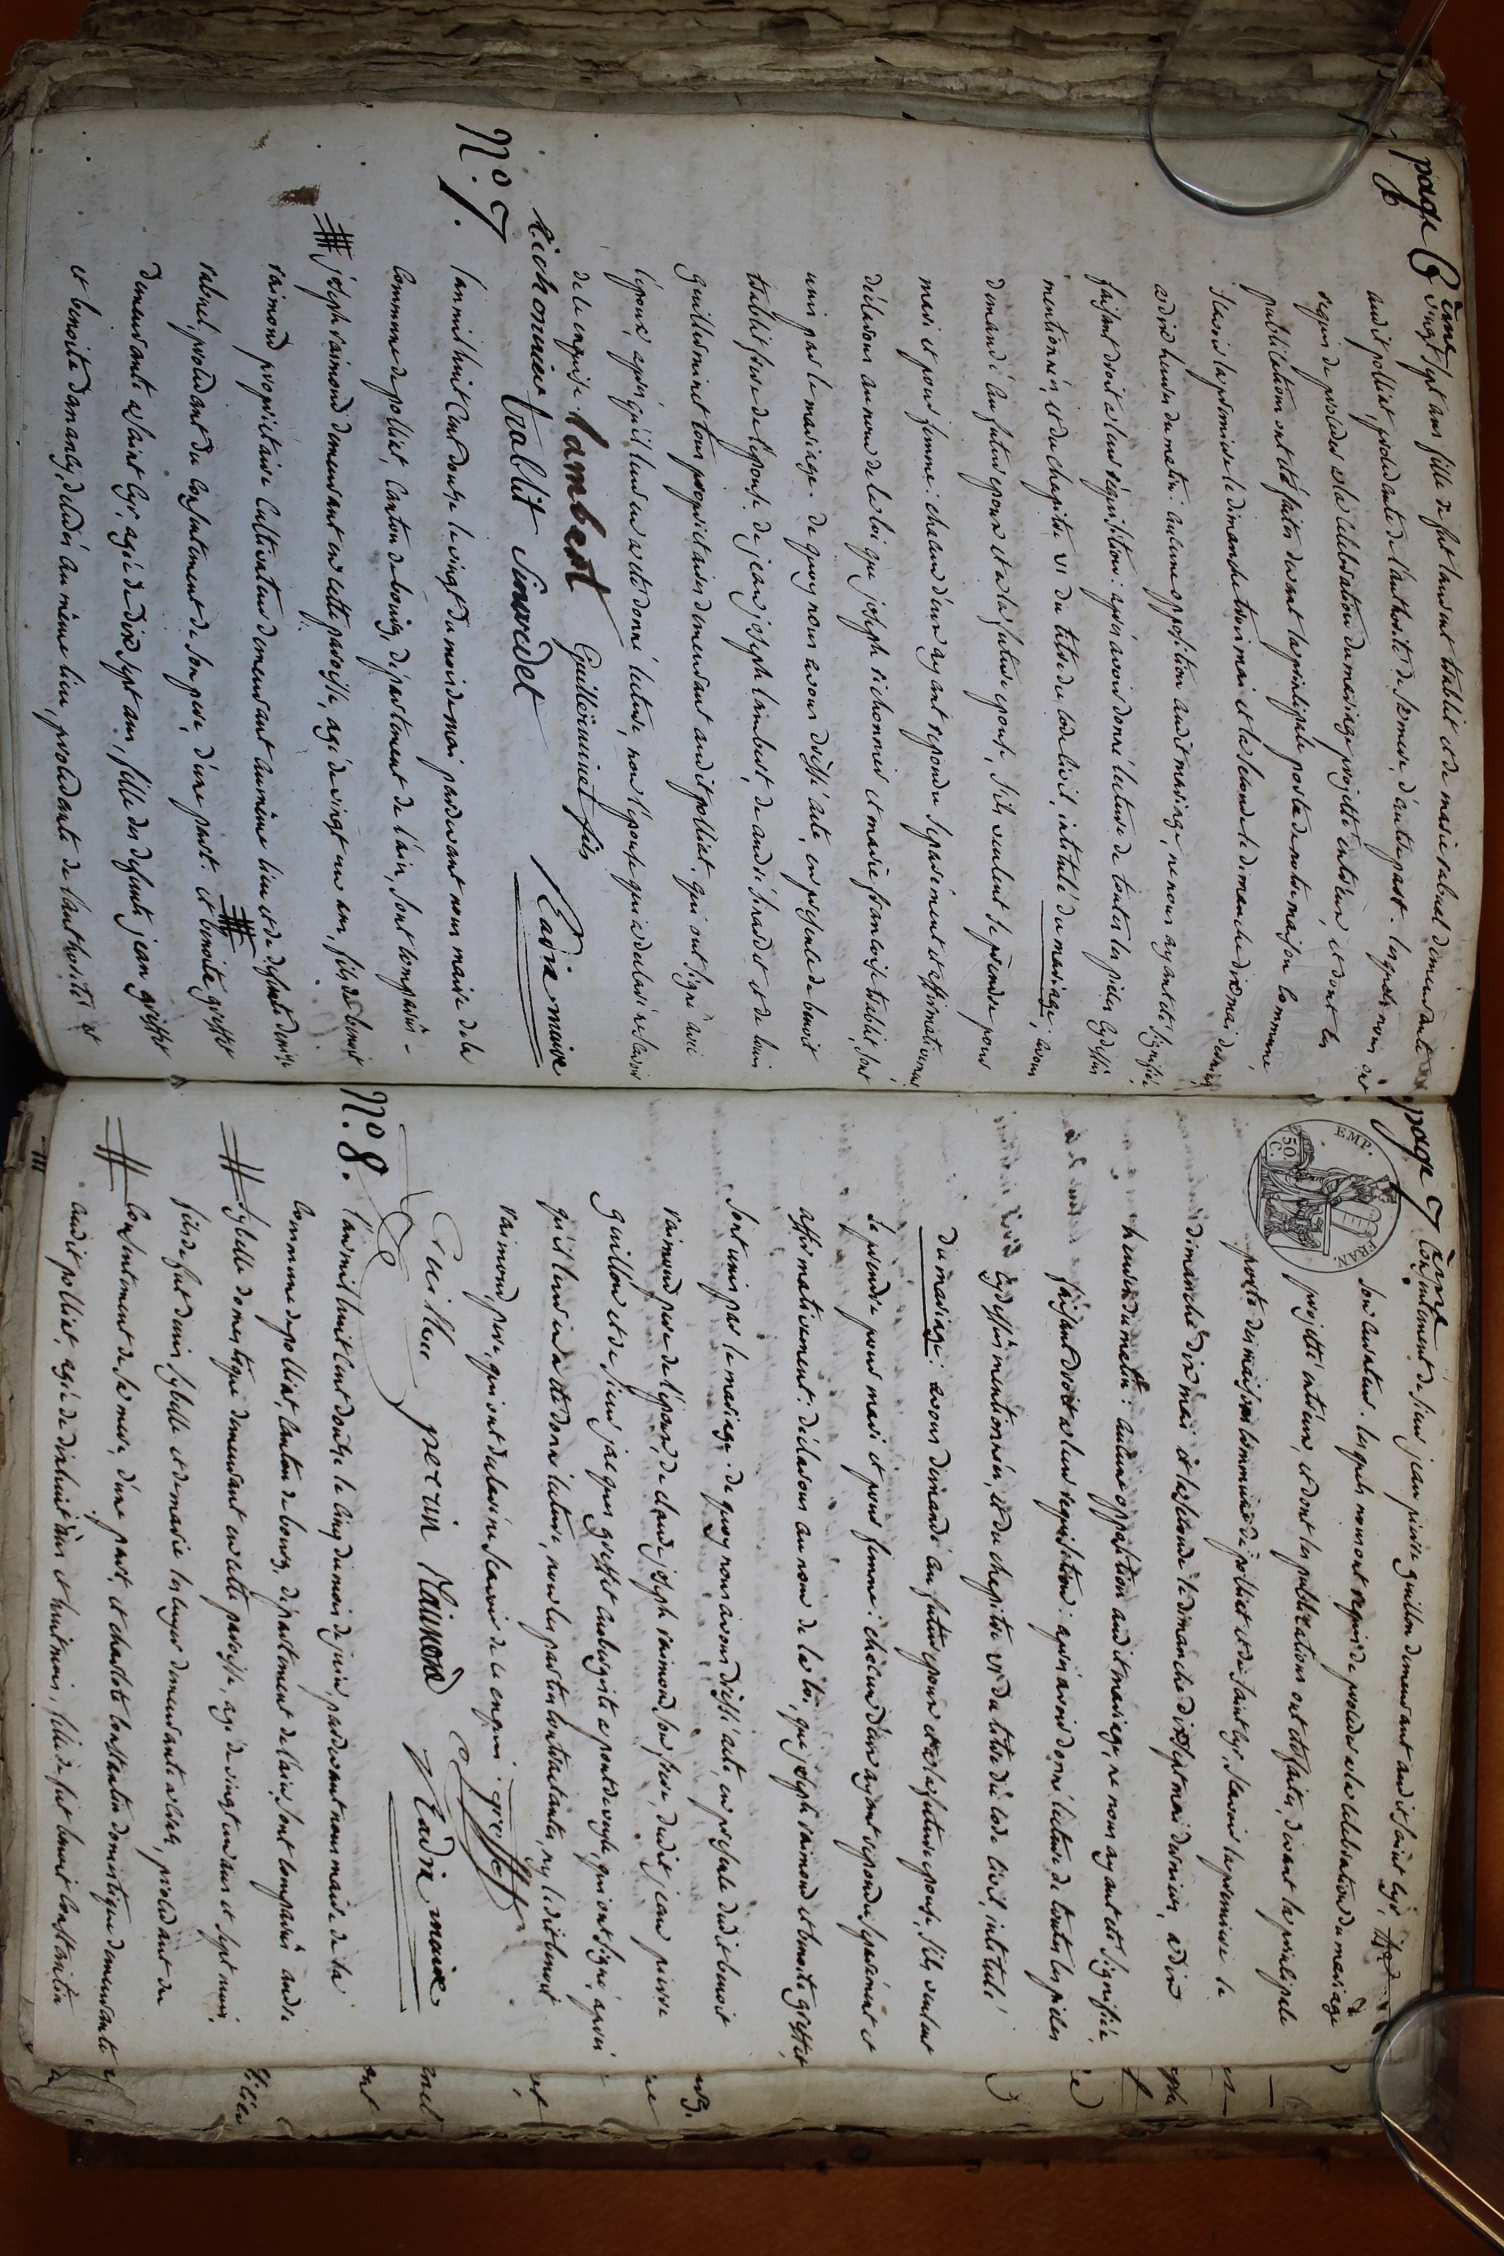 page 6ème
vingt sept ans fille de fut laurent trablit et de marie rabuel demeurante
audit polliat, procedante de l'authorité de sa mere, d'autre part. lesquels nous ont
requis de proceder a la celebration du mariage projetté entr'eux, et dont les
publications ont été faites devant la principale porte de notre maison commune,
scavoir la premiere le dimanche trois mai et la seconde le dimanche dix mai dernier,
a dix heures du matin: aucune opposition audit mariage, ne nous ayant été signifiée,
faisant droit a leur réquisition: après avoir donné lecture de toutes les pieces cydessus
mentionnées, et du chapitre VI du titre du code civil, intitulé du mariage; avons
demandé au futur epoux et a la future epouse, s'ils veulent se prendre pour
mari et pour femme: chacun d'eux ayant repondu separément et affirmativement,
déclarons au nom de la loi que joseph lichonnier et marie françoise trablit, sont
unis par le mariage. de quoy nous avons dressé acte, en presence de benoit
trablit frere de l'epouse, de jean joseph lambert, de andré sirardet et de louis
guillerminet tous proprietaires demeurant audit polliat. qui ont signé avec
l'epoux, après qu'il leur en a été donné lecture, non l'epouse qui a declaré ne scavoir
de ce enquise. lambert Guillerminet fils
lichonnier trablit Sirardet Cadie maire
N.º 7. l'an mil huit cent douze le vingt du mois de mai pardevant nous maire de la
commune de polliat, canton de bourg, département de l'ain, sont comparus
joseph raimond demeurant en cette paroisse, agé de vingt un ans, fils de benoit
raimond proprietaire cultivateur demeurant au même lieu et de defunte denise
rabuel, procedant du consentement de son pere, d'une part. et benoite greffet
demeurante a saint cyr, agée de dix sept ans, fille des defunts jean greffet
et benoite damanly, decedés au même lieu, procedante de l'authorité et
page 7ème
EMP. FRAN.
50 C.
consentement de sieur jean pierre guillon demeurant audit saint cyr,
son curateur. lesquels nous ont requis de proceder a la celebration du mariage
projetté entr'eux, et dont les publications ont été faites, devant la principale
porte des maisons communes de polliat et de saint cyr, scavoir la premiere le
dimanche dix mai et la seconde le dimanche dix sept mai dernier, a dix
heures du matin: aucune opposition audit mariage, ne nous ayant été signifiée,
faisant droit a leur requisition: après avoir donné lecture de toutes les pieces
cydessus mentionnées, et du chapitre VI du titre du code civil, intitulé
du mariage: avons demandé au futur epoux et a la future epouse, s'ils veulent
se prendre pour mari et pour femme: chacun d'eux ayant repondu separément et
affirmativement: déclarons au nom de la loi, que joseph raimond et benoite greffet,
sont unis par le mariage. de quoy nous avons dressé acte, en presence dudit benoit
raimond pere de l'epoux, de claude joseph raimond, son frere, dudit jean pierre
guillon et de sieur jacques greffet aubergiste a pont de veyle, qui ont signé, après
qu'il leur en a été donné lecture, non les parties contractantes, ny ledit benoit
raimond, pere, qui ont declaré ne scavoir de ce enquis. greffet
perrin Raimond Cadie maire
N.º 8. l'an mil huit cent douze le cinq du mois de juin, pardevant nous maire de la
commune de polliat, canton de bourg, département de l'ain, sont comparus andré
sybelle domestique demeurant en cette paroisse, agé de vingt un ans et sept mois,
fils de fut denis sybelle et de marie demeurante a , procedant du
consentement de sa mere, d'une part, et charlote constantin domestique demeurante
audit polliat, agée de dix huit ans et huit mois, fille de fut benoit constantin